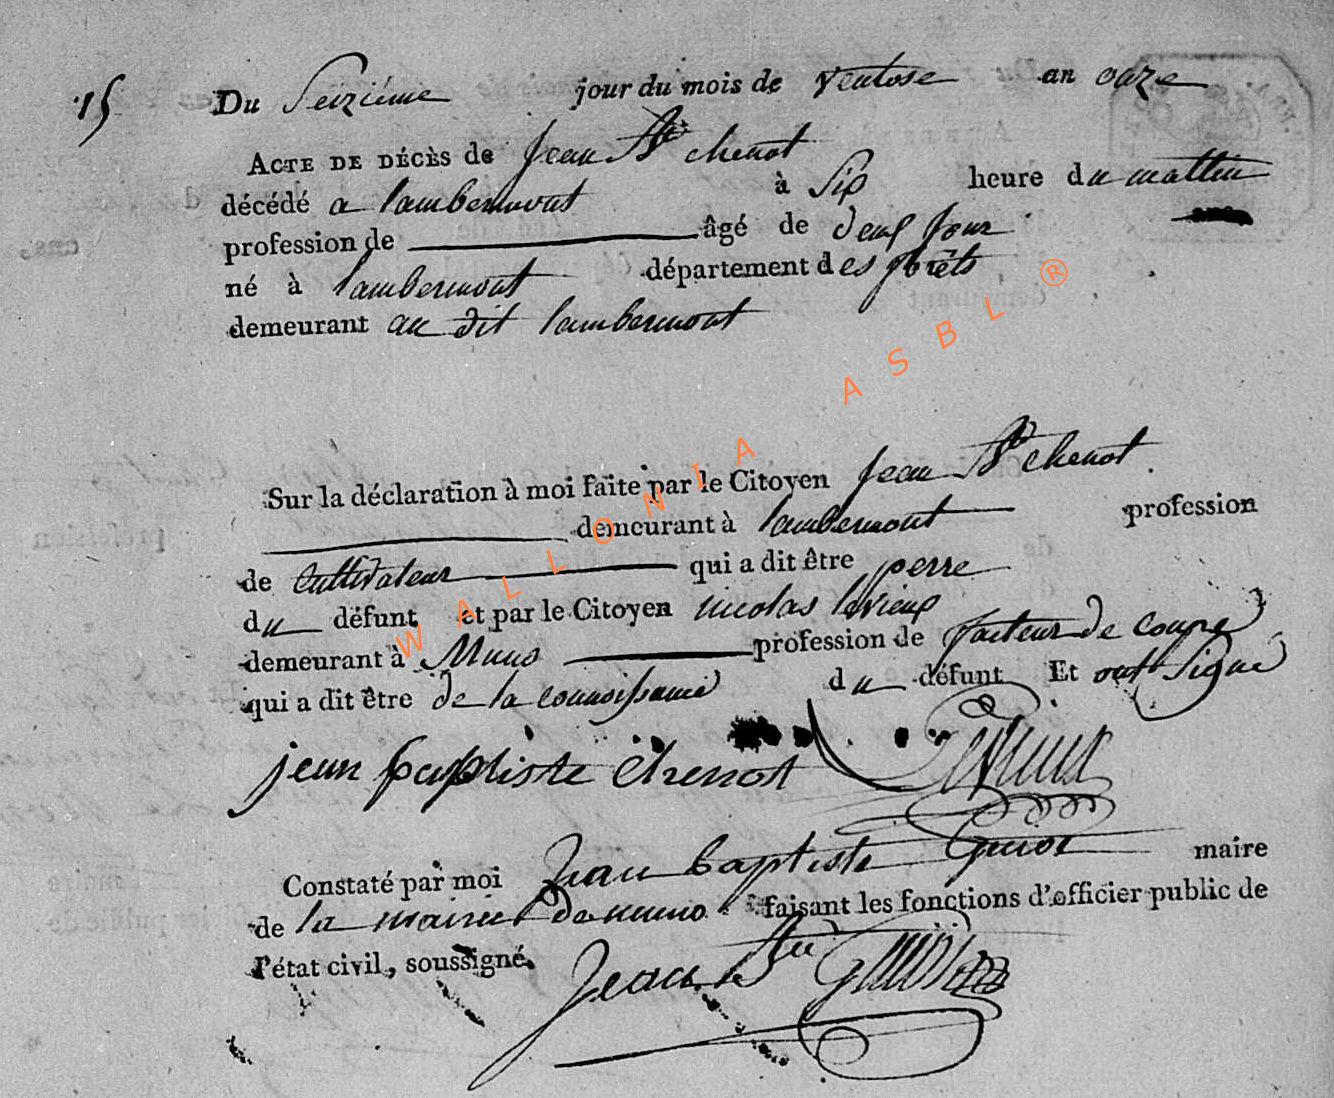 15
Du Seiziéme jour du mois de Ventose an onze
ACTE DE DÉCÈS de Jean Bte chenot
décédé a lambermont à Six heure du mattin
profession de âgé de deux Jour
né à lambermont département des forêts
demeurant au dit lambermont
Sur la déclaration à moi faite par le Citoyen Jean Bte chenot
demeurant à lambermont profession
de Cultivateur qui a dit être perre
du défunt et par le Citoyen nicolas levieux
demeurant à Muno profession de facteur de coupe
qui a dit être de la connoissance du défunt Et ont Signé
jean baptiste chenot
Constaté par moi Jean baptiste Guiot maire
de la mairie de muno faisant les fonctions d'officier public de
l'état civil, soussigné.
Jean Bte Guiot
WALLONIA ASBL ®